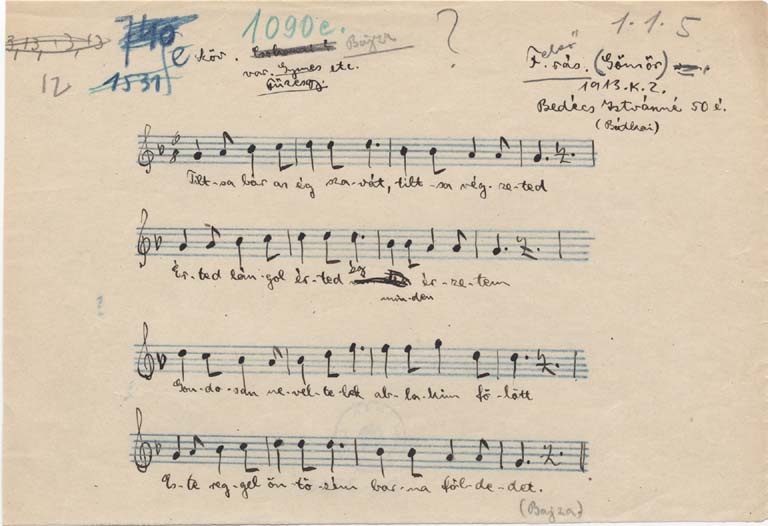 1090e.
1.1.5
?
3, 13, 13, 13
e köv.
Bajza
F. rás. (Gömör)
felső
12
1531
var. Gyimes etc.
1913. K. Z.
Bedécs Istvánné 50 é.
6
8
Tilt-sa bár az ég sza-vát, tilt-sa vég-ze-ted
Ér-ted lán-gol ér-ted ég ér-ze-tem
min-den
Gon-do-san ne-vel-te-lek ab-la-kim fö-lött
Es-te reg-gel ön-tö-zém bar-na föl-de-det.
(Bajza)